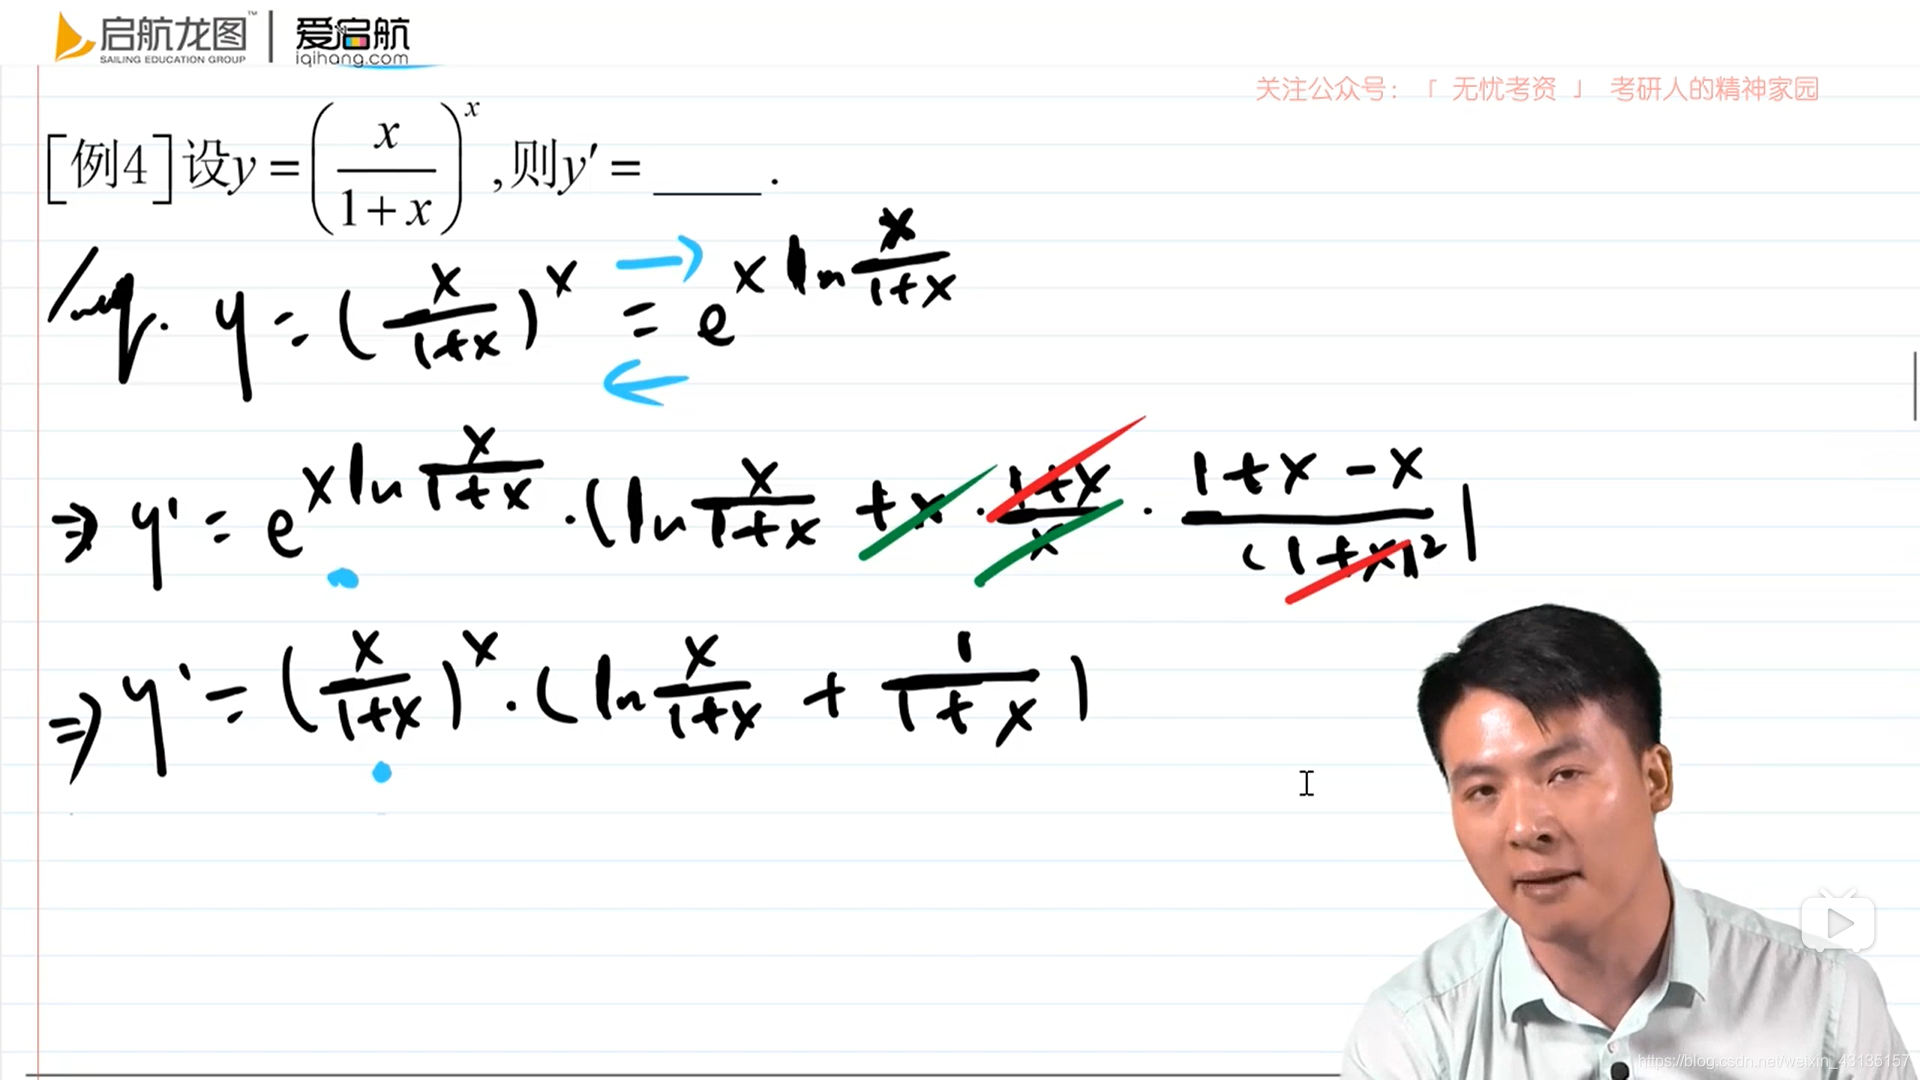 启航龙图™ | 爱启航
SAILING EDUCATION GROUP iqihang.com
关注公众号：「 无忧考资 」 考研人的精神家园
[例4]设y=(x/(1+x))^x,则y′=____.
y=(x/(1+x))^x = e^(x ln x/(1+x))
⇒ y' = e^(x ln x/(1+x)) · (ln x/(1+x) + x · (1+x)/x · (1+x-x)/(1+x)²)
⇒ y' = (x/(1+x))^x · (ln x/(1+x) + 1/(1+x))
https://blog.csdn.net/weixin_43135157